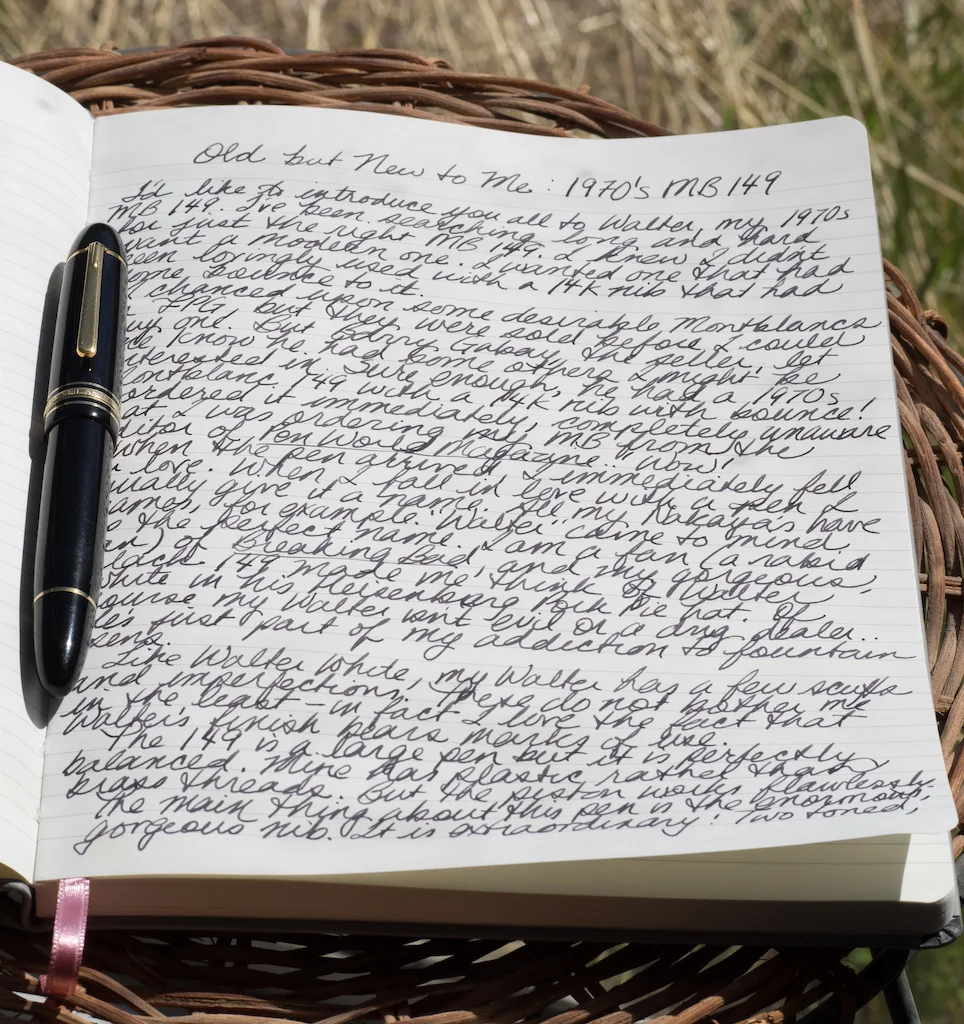 Old but New to Me: 1970's MB 149
I'd like to introduce you all to Walter, my 1970s
MB 149. I've been searching long and hard
for just the right MB 149. I knew I didn't
want a modern one. I wanted one that had
been lovingly used with a 14K nib that had
some bounce to it.
I chanced upon some desirable Montblancs
FPG but they were sold before I could
buy one. But Barry Gabay, the seller, let
me know he had some others I might be
interested in. Sure enough, he had a 1970s
Montblanc 149 with a 14K nib with bounce!
ordered it immediately, completely unaware
that I was ordering my MB from the
editor of Pen World Magazine. Wow!
When the pen arrived I immediately fell
in love. When I fall in love with a pen I
usually give it a name. All my Nakayas have
names, for example. "Walter" came to mind
as the perfect name. I am a fan (a rabid
fan) of Breaking Bad, and my gorgeous,
black 149 made me think of Walter
White in his Heisenberg Pork Pie hat. Of
course my Walter isn't evil or a drug dealer..
He's just part of my addiction to fountain
pens.
Like Walter White, my Walter has a few scuffs
and imperfections. These do not bother me
in the least - in fact I love the fact that
Walter's finish bears marks of use.
The 149 is a large pen but it is perfectly
balanced. Mine has plastic rather than
brass threads. But the piston works flawlessly.
The main thing about this pen is the enormous,
gorgeous nib. It is extraordinary! Two toned,